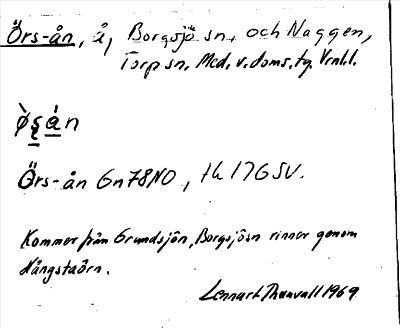 Örs-ån, å, Borgsjö sn, och Naggen,
Torp sn, Med. v. doms. tg. Vrnl.l.
ø̀ṣán
Örs-ån Gn78NO, tk 17G SV.
Kommer från Grundsjön, Borgsjösn rinner genom
Hångstaörn.
Lennart Thunvall 1969